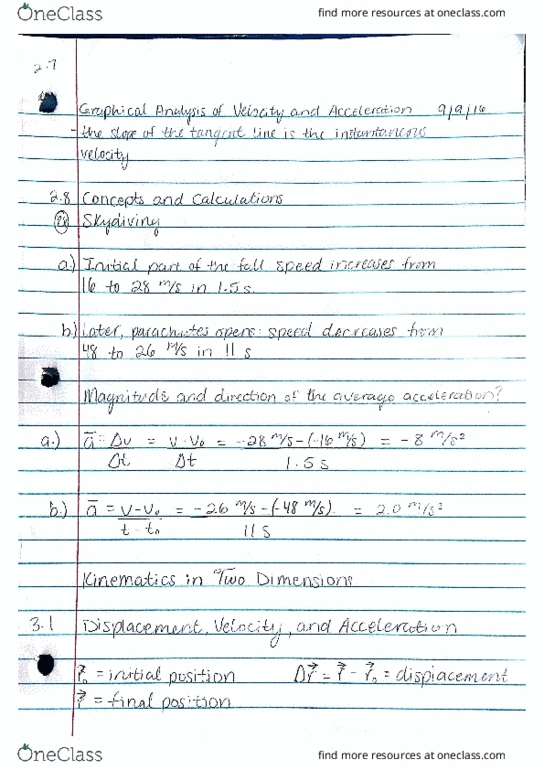 OneClass find more resources at oneclass.com
2.7
Graphical Analysis of Velocity and Acceleration 9/9/16
- the slope of the tangent line is the instantaneous
velocity
2.8 Concepts and Calculations
Ex Skydiving
a.) Initial part of the fall speed increases from
16 to 28 m/s in 1.5 s.
b.) Later, parachutes opens: speed decreases from
48 to 26 m/s in 11 s
Magnitude and direction of the average acceleration?
a.) a̅ = Δv = v - v₀ = -28 m/s - (-16 m/s) = -8 m/s²
Δt Δt 1.5 s
b.) a̅ = v - v₀ = -26 m/s - (-48 m/s) = 2.0 m/s²
t - t₀ 11 s
Kinematics in Two Dimensions
3.1 Displacement, Velocity, and Acceleration
r⃗₀ = initial position Δr⃗ = r⃗ - r⃗₀ = displacement
r⃗ = final position
OneClass find more resources at oneclass.com